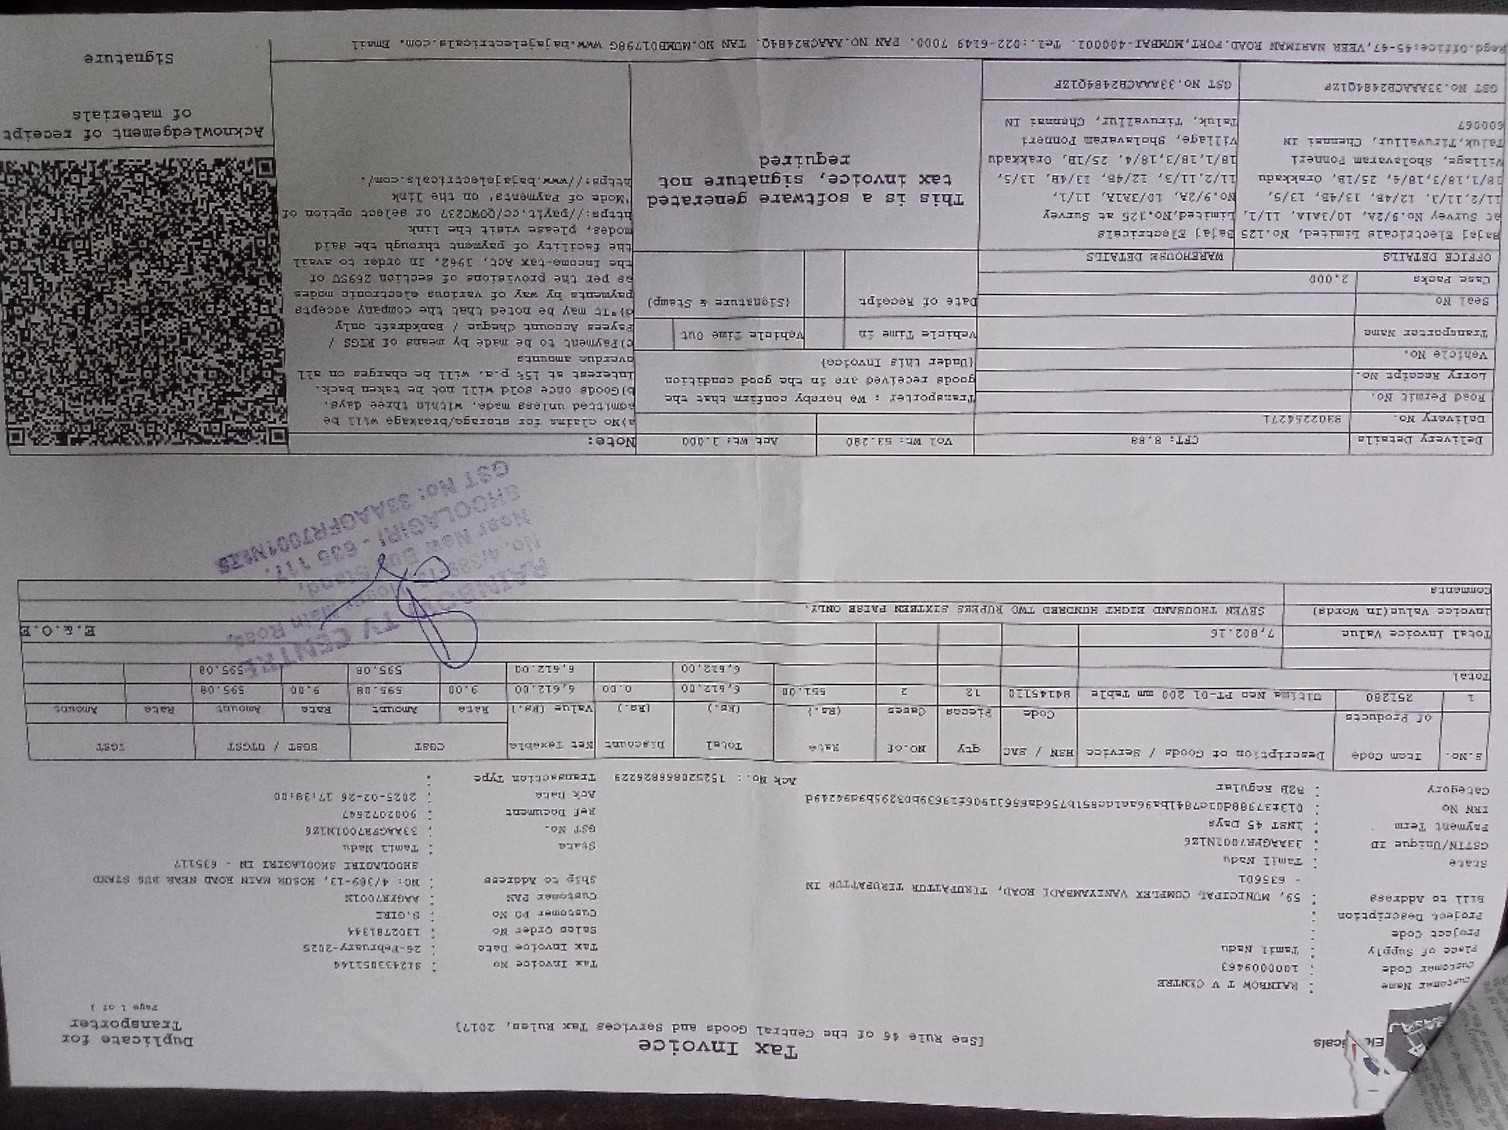 Tax Invoice
[See Rule 46 of the Central Goods and Services Tax Rules, 2017]
Duplicate for
Transporter
Page 1 of 1
Customer Name : RAINBOW T V CENTRE
Customer Code : 1000009463
Place of Supply : Tamil Nadu
Project Code :
Project Description :
Bill to Address : 59, MUNICIPAL COMPLEX VANIYAMBADI ROAD, TIRUPATTUR TIRUPATTUR IN
- 635601
State : Tamil Nadu
GSTIN/Unique ID : 33AAGFR7001N1Z6
Payment Term : INST 45 Days
IRN No :
Category : B2B Regular
Tax Invoice No :
Tax Invoice Date : 26-February-2025
Sales Order No : 1302781344
Customer PO No : S.GIRI
Customer PAN : AAGFR7001N
Ship to Address : NO: 4/389-13, HOSUR MAIN ROAD NEAR BUS STAND
SHOOLAGIRI SHOOLAGIRI IN - 635117
State : Tamil Nadu
GST No. : 33AAGFR7001N1Z6
Ref Document : 9002072547
Ack Date : 2025-02-26 17:39:00
Ack No.: 152520866826229 Transaction Type :
S.No. Item Code of Products Description of Goods / Service HSN / SAC Code qty Pieces NO.of Cases Rate (Rs.) Total (Rs.) Discount (Rs.) Net Taxable Value (Rs.) CGST Rate Amount SGST / UTGST Rate Amount IGST Rate Amount
1 251280 Ultima Neo PT-01 200 mm Table 84145110 12 2 551.00 6,612.00 0.00 6,612.00 9.00 595.08 9.00 595.08
Total 6,612.00 6,612.00 595.08 595.08
Total Invoice Value 7,802.16
E.& O.E
Invoice Value(In Words) SEVEN THOUSAND EIGHT HUNDRED TWO RUPEES SIXTEEN PAISE ONLY.
Comments
RAINBOW TV CENTRE
Hosur Main Road,
Near New Bus Stand,
SHOOLAGIRI - 635 117.
GST No: 33AAGFR7001N1Z6
Delivery Details CFT: 8.88 Vol Wt: 53.280 Act Wt: 1.000
Delivery No. 8302254271
Road Permit No.
Lorry Receipt No.
Vehicle No.
Transporter Name
Seal No
Case Packs 2.000
Transporter : We hereby confirm that the
goods received are in the good condition
(Under this Invoice)
Vehicle Time in Vehicle Time Out
Date of Receipt (Signature & Stamp)
Note:
a)No claims for storage/breakage will be
admitted unless made, within three days.
b)Goods once sold will not be taken back.
Interest at 15% p.a. will be charges on all
overdue amounts
c)Payment to be made by means of RTGS /
Payees Account Cheque / Bankdraft only
d)"It may be noted that the company accepts
payments by way of various electronic modes
as per the provisions of section 269SU of
the Income-tax Act, 1962. In order to avail
the facility of payment through the said
modes, please visit the link
https://payit.cc/QOWC237 or select option of
'Mode of Payments' on the link
https://www.bajajelectricals.com/.
OFFICE DETAILS
Bajaj Electricals Limited, No.125
at Survey No.9/2A, 10/3A1A, 11/1,
11/2,11/3, 12/4B, 13/4B, 13/5,
18/1,18/3,18/4, 25/1B, Orakkadu
Village, Sholavaram Ponneri
Taluk,Tiruvallur, Chennai IN
600067
GST No.33AAACB2484Q1ZF
WAREHOUSE DETAILS
Bajaj Electricals
Limited,No.125 at Survey
No.9/2A, 10/3A1A, 11/1,
11/2,11/3, 12/4B, 13/4B, 13/5,
18/1,18/3,18/4, 25/1B, Orakkadu
Village, Sholavaram Ponneri
Taluk, Tiruvallur, Chennai IN
GST No.33AAACB2484Q1ZF
This is a software generated
tax invoice, signature not
required
Acknowledgement of receipt
of materials
Signature
Regd.Office:45-47,VEER NARIMAN ROAD.FORT,MUMBAI-400001. Tel.:022-6149 7000. PAN NO.AAACB2484Q. TAN NO.MUMB01798G www.bajajelectricals.com. Email